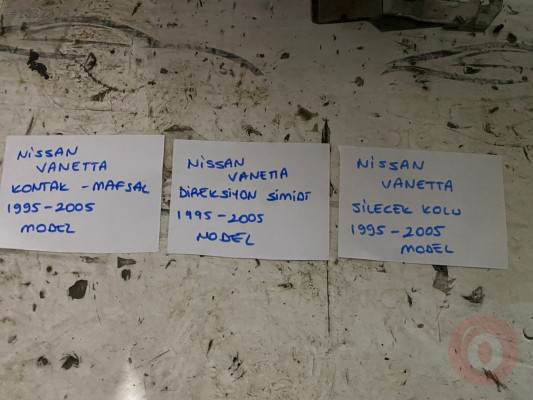 NİSSAN
VANETTA
KONTAK - MAFSAL
1995-2005
MODEL
NİSSAN
VANETTA
DİREKSİYON SİMİDİ
1995-2005
MODEL
NİSSAN
VANETTA
SİLECEK KOLU
1995-2005
MODEL